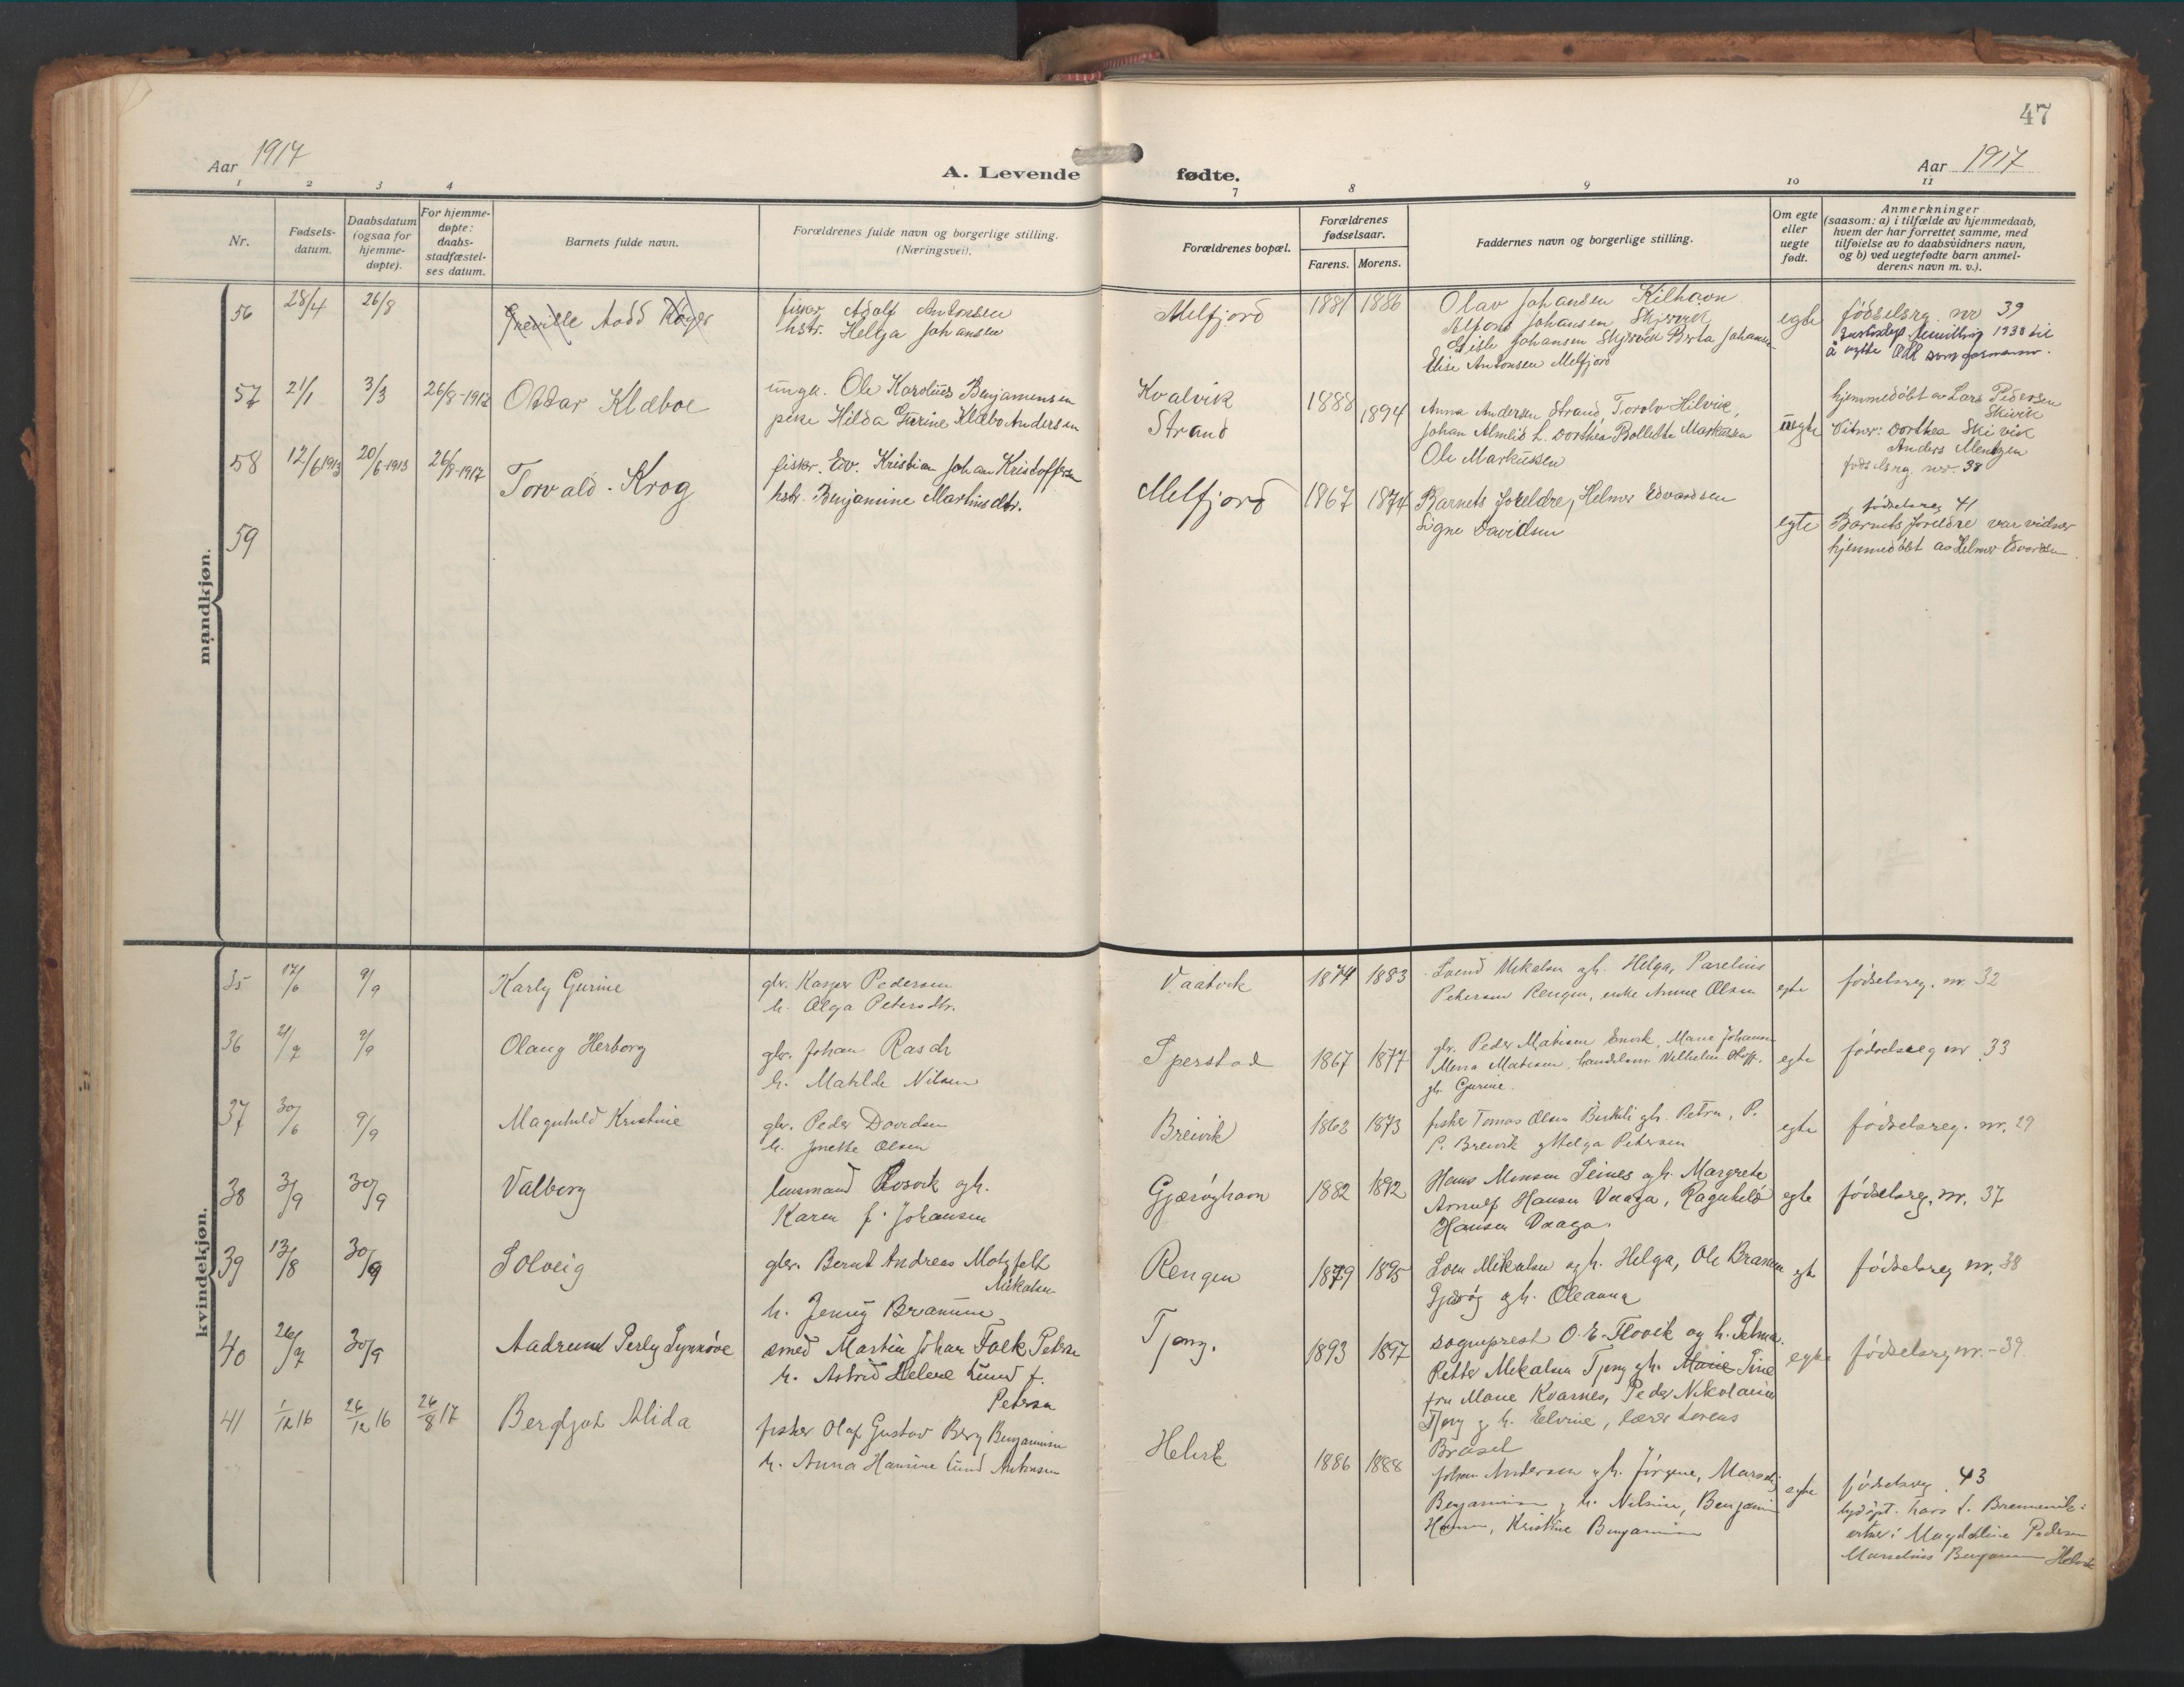 47
Aar 1917
A. Levende fødte.
Aar 1917
1 2 3 4 7 8 9 10 11
Nr.
Fødsels-
datum.
Daabsdatum
(ogsaa for
hjemme-
døpte).
For hjemme-
døpte:
daabs-
stadfæstel-
ses datum.
Barnets fulde navn.
Forældrenes fulde navn og borgerlige stilling.
(Næringsvei).
Forældrenes bopæl.
Forældrenes
fødselsaar.
Farens. Morens.
Faddernes navn og borgerlige stilling.
Om egte
eller
uegte
født.
Anmerkninger
(saasom: a) i tilfælde av hjemmedaab,
hvem der har forrettet samme, med
tilføielse av to daabsvidners navn,
og b) ved uegtefødte barn anmel-
derens navn m. v.).
mandkjøn.
56 28/4 26/8
Greville Aodd Røger
fisker Adolf Antonsen
hstr. Helga Johansen
Melfjord
1881 1886
Olav Johansen Kilhavn
Alfons Johansen Skjervik
Gisle Johansen Skjervik Berta Johansen
Elise Antonsen Melfjord
egte
fødselsrg. nr 39
1938 til
å nytte Odd som fornavn.
57 21/1 3/3 26/8-1917
Oddar Klæboe
ungk. Ole Karolius Benjaminsen
pike Hilda Gurine Klæbo Andersen
Kvalvik
Strand
1888 1894
Anna Andersen Strand, Torolv Hilvik,
Johan Almlid h. Dorthea Bolledte Markussen
Ole Markussen
uegte
hjemmedøbt av Lars Pedersen
Skivik
Vitner: Dorthea Skivik
Anders Mentzen
fødselsrg. nr. 38
58 12/6 1913 20/6-1913 26/8-1917
Torvald Krog
fisker. Edv. Kristian Johan Kristoffersen
hstr. Benjamine Martinsdtr.
Melfjord
1867 1874
Barnets foreldre, Helmer Edvardsen
Signe Davidsen
egte
fødselsreg 41
Barnets foreldre var vidner
hjemmedøbt av Helmer Edvardsen
59
kvindekjøn.
35 17/6 9/9
Karly Gurine
gbr. Kasper Pedersen
h. Olga Petersdtr.
Vaatvik
1874 1883
Svend Mikalsen og h. Helga, Parelius
Petersen Rengen, enke Anne Olsen
egte
fødselsreg. nr. 32
36 21/7 9/9
Olaug Herborg
gbr. Johan Rasch
h. Matilde Nilsen
Sperstad
1867 1877
gbr. Peder Matisen Envik, Marie Johansen
Mena Matisen, handelsm. Vilhelm Hoff.
gh. Gurine.
egte
fødselsreg nr 33
37 30/6 9/9
Magnhild Kristine
gbr. Peder Davidsen
h. Jonette Olsen
Breivik
1863 1873
fisker Tomas Olsen Birkeli gh. Petra, P.
P. Breivik g Helga Petersen
egte
fødselsreg. nr. 29
38 3/9 30/9
Valborg
lensmand Rosvik gh.
Karen f. Johansen
Gjærøyhavn
1882 1892
Hans Monsen Seines gh. Margrete
Arnulf Hansen Vaaga, Ragnhild
Hansen Vaaga.
egte
fødselsreg. nr. 37
39 13/8 30/9
Solveig
gbr. Bernt Andreas Motzfelt
Mikalsen
h. Jenny Bramine
Rengen
1879 1895
Sven Mikalsen og h. Helga, Ole Bramsen
Gjærøy gh. Oleanna
egte
fødselsreg nr. 38
40 26/7 30/9
Aadrund Perly Synnøve
smed Martin Johan Falk Petersen
h. Astrid Helene Lund f.
Petersen
Tjong.
1893 1897
sogneprest O. E. Flovik og h. Selma.
Petter Mikalsen Tjong gh. Marie Tine
fru Marie Kvarnes, Peder Nikolaisen
Tjong g h. Elvine, lærer Lorens
Brasel
egte
fødselsreg nr. -39.
41 1/12 16 26/12 16 26/8 17
Bergljot Alida
fisker Olaf Gustav Berg Benjaminsen
h. Anna Hansine Lund Antonsen
Helvik
1886 1888
Johan Andersen g h. Jørgine, Marselius
Benjaminsen g h. Nilsine, Benjamin
Hansen, Kristine Benjaminsen
egte
fødselsreg. 43
hjdøpt. hars f. Bremmvik:
vitner: Magdaline Pedersen
Marselius Benjaminsen Helvik